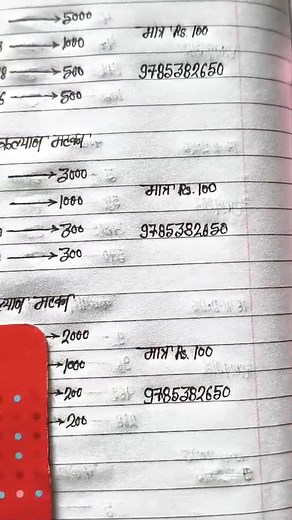 →5000
→1000 मात्र Rs 100
8 →500 9785382650
→500
कल्याण मटका
→3000
→1000 मात्र Rs. 100
→300 9785382650
→300
मटका
→2000
→1000 मात्र Rs. 100
→200 9785382650
→200